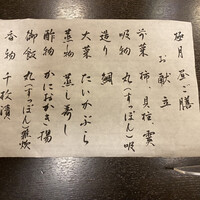 極月 昼ご膳
お献立
前菜 柿、貝柱、雲
吸物 丸(すっぽん)吸
造り 鯛
大菜 たいかぶら
蒸し物 蒸し寿し
酢物 かにおかき揚
御飯 丸(すっぽん)雑炊
香物 千枚漬